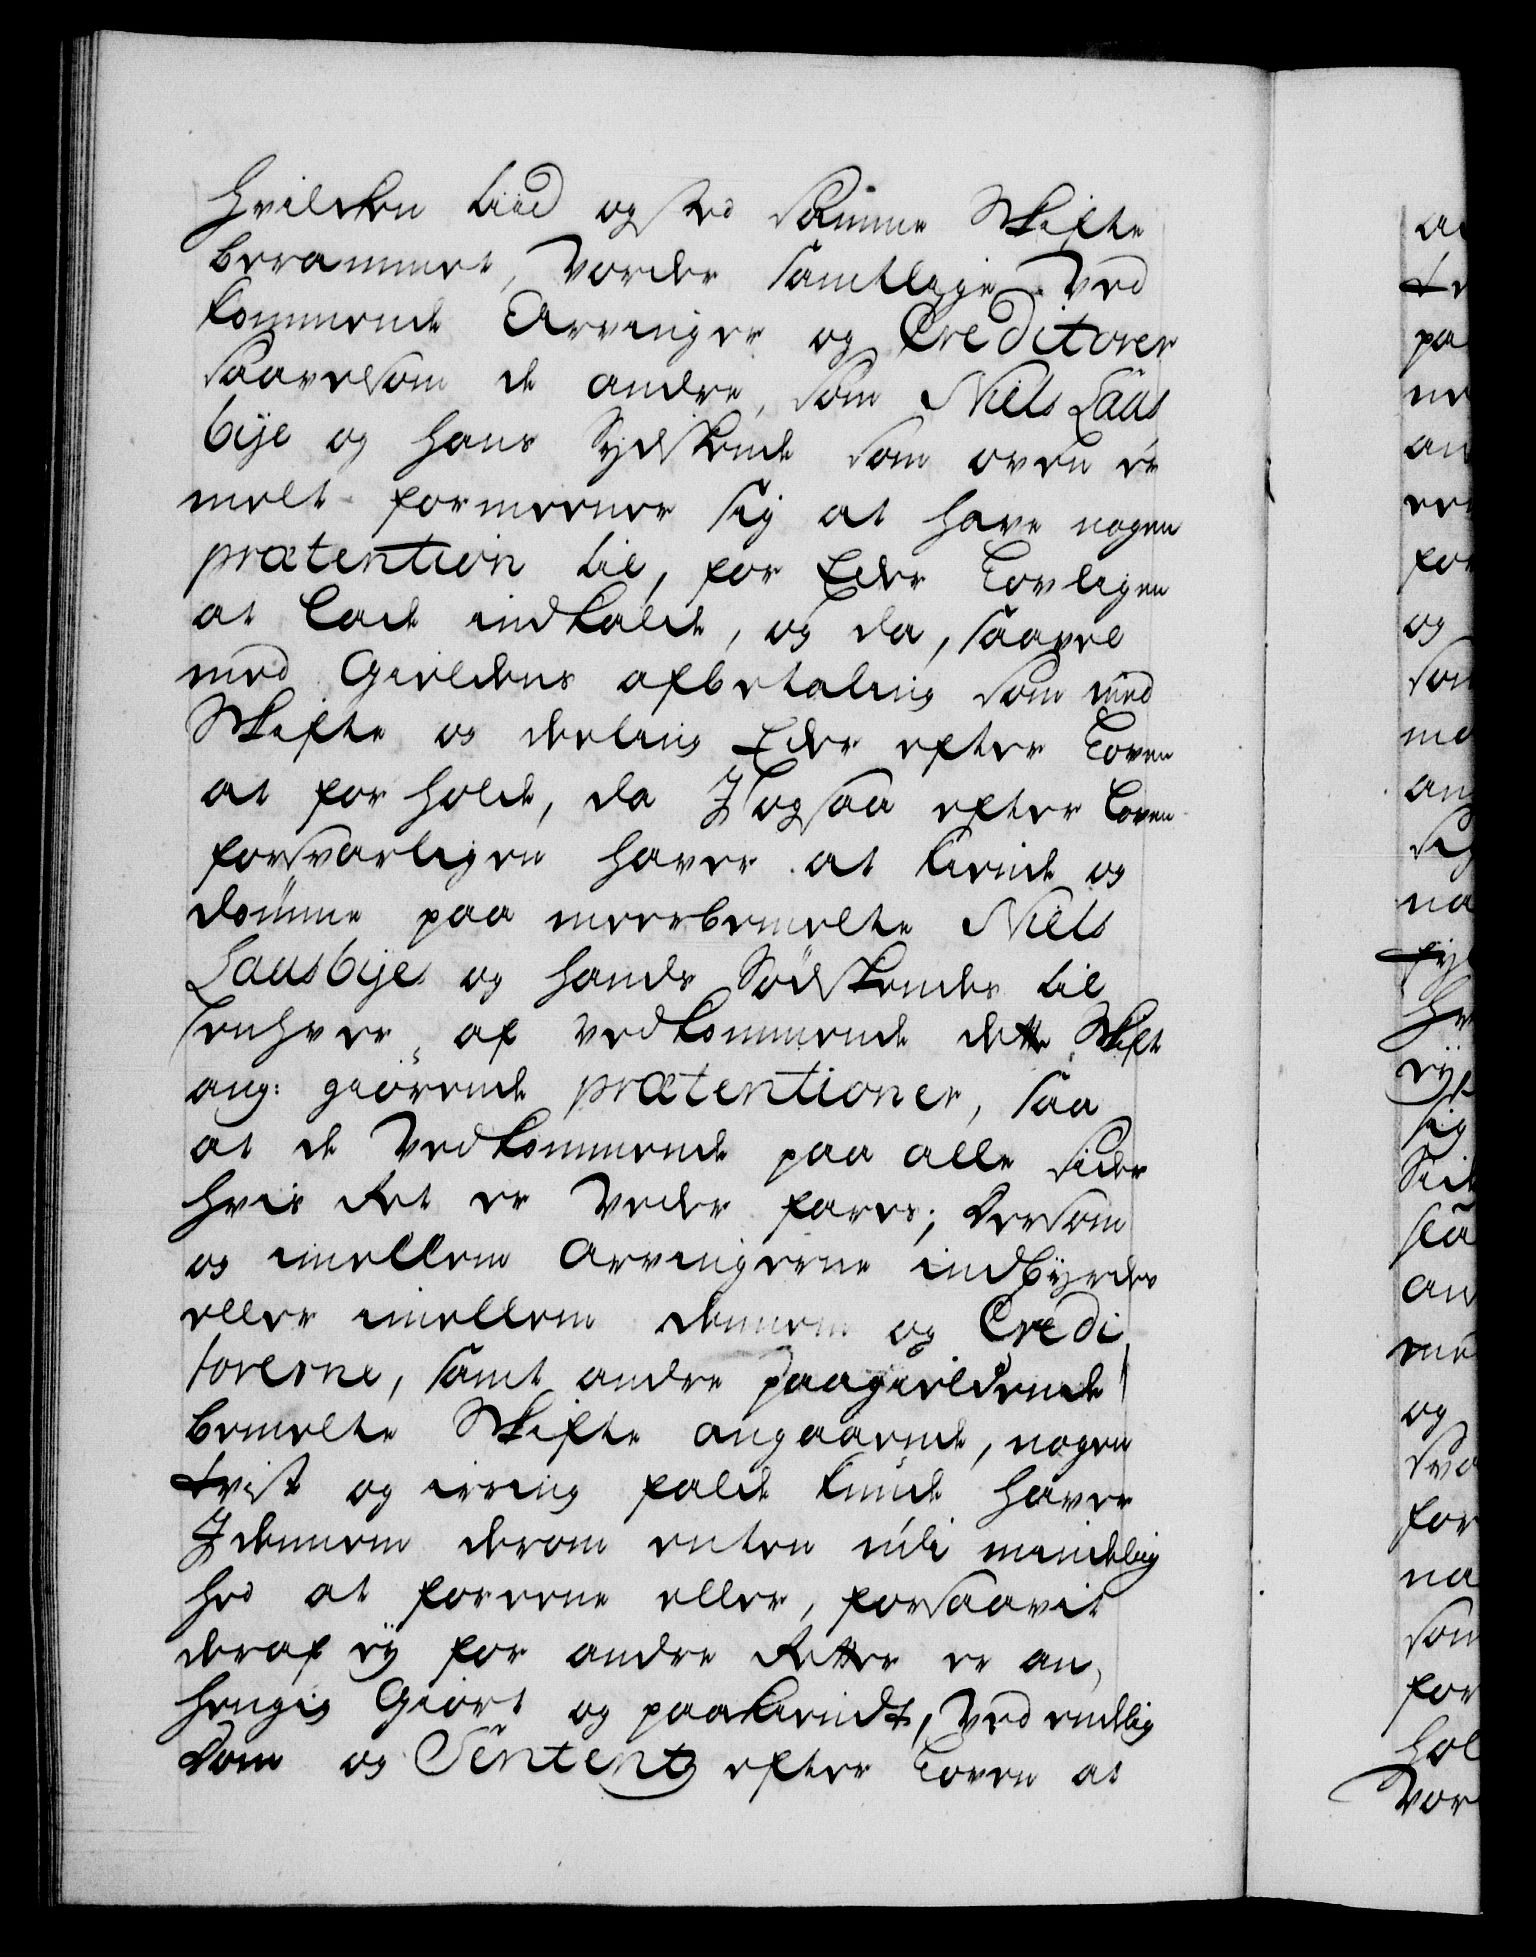 Hvilken tiid og sted Samme Skifte
berammet, Vorder samtlige Ved
kommende Arvinger og Creditorer
saavelsom de andre, som Niels Laas
bije og hans Sydskende som oven er
melt formeener sig at have nogen
prætention til, for Eder Lovligen
at lade indkalde, og da, saavel
med Gieldens afbetaling som med
Skifte og deeling Eder efter Loven
at forholde, da I ogsaa efter Loven
forsvarligen haver at kiende og
dømme paa meerbemelte Niels
Laasbijes og hands Sødskendes til
Enhver af Vedkommende dette Skift
ang: giørende prætentioner, saa
at de Vedkommende paa alle sider
hvis Ret er Veder fares; Dersom
og imellem Arvingerne indbyrdes
eller imellem dennem og Credi
torerne, samt andre paagieldende
bemelte Skifte angaaende, nogen
tvist og irring falde kunde haver
I dennem derom enten udi mindelig
hed at foreene eller, forsaavit
deraf ey for andre Retter er an,
hengig Giort og paakiendt, Ved endelig
Dom og Sententz efter Loven at